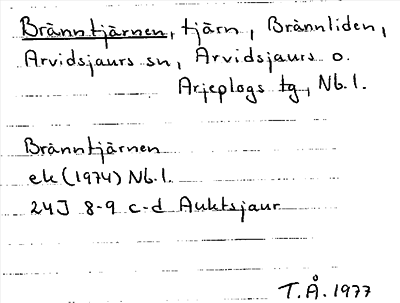 Bränntjärnen, tjärn, Brännliden,
Arvidsjaurs sn, Arvidsjaurs o.
Arjeplogs tg, Nb. l.
Bränntjärnen
ek (1974) Nb. l.
24J 8-9 c-d Auktsjaur
T.Å. 1977